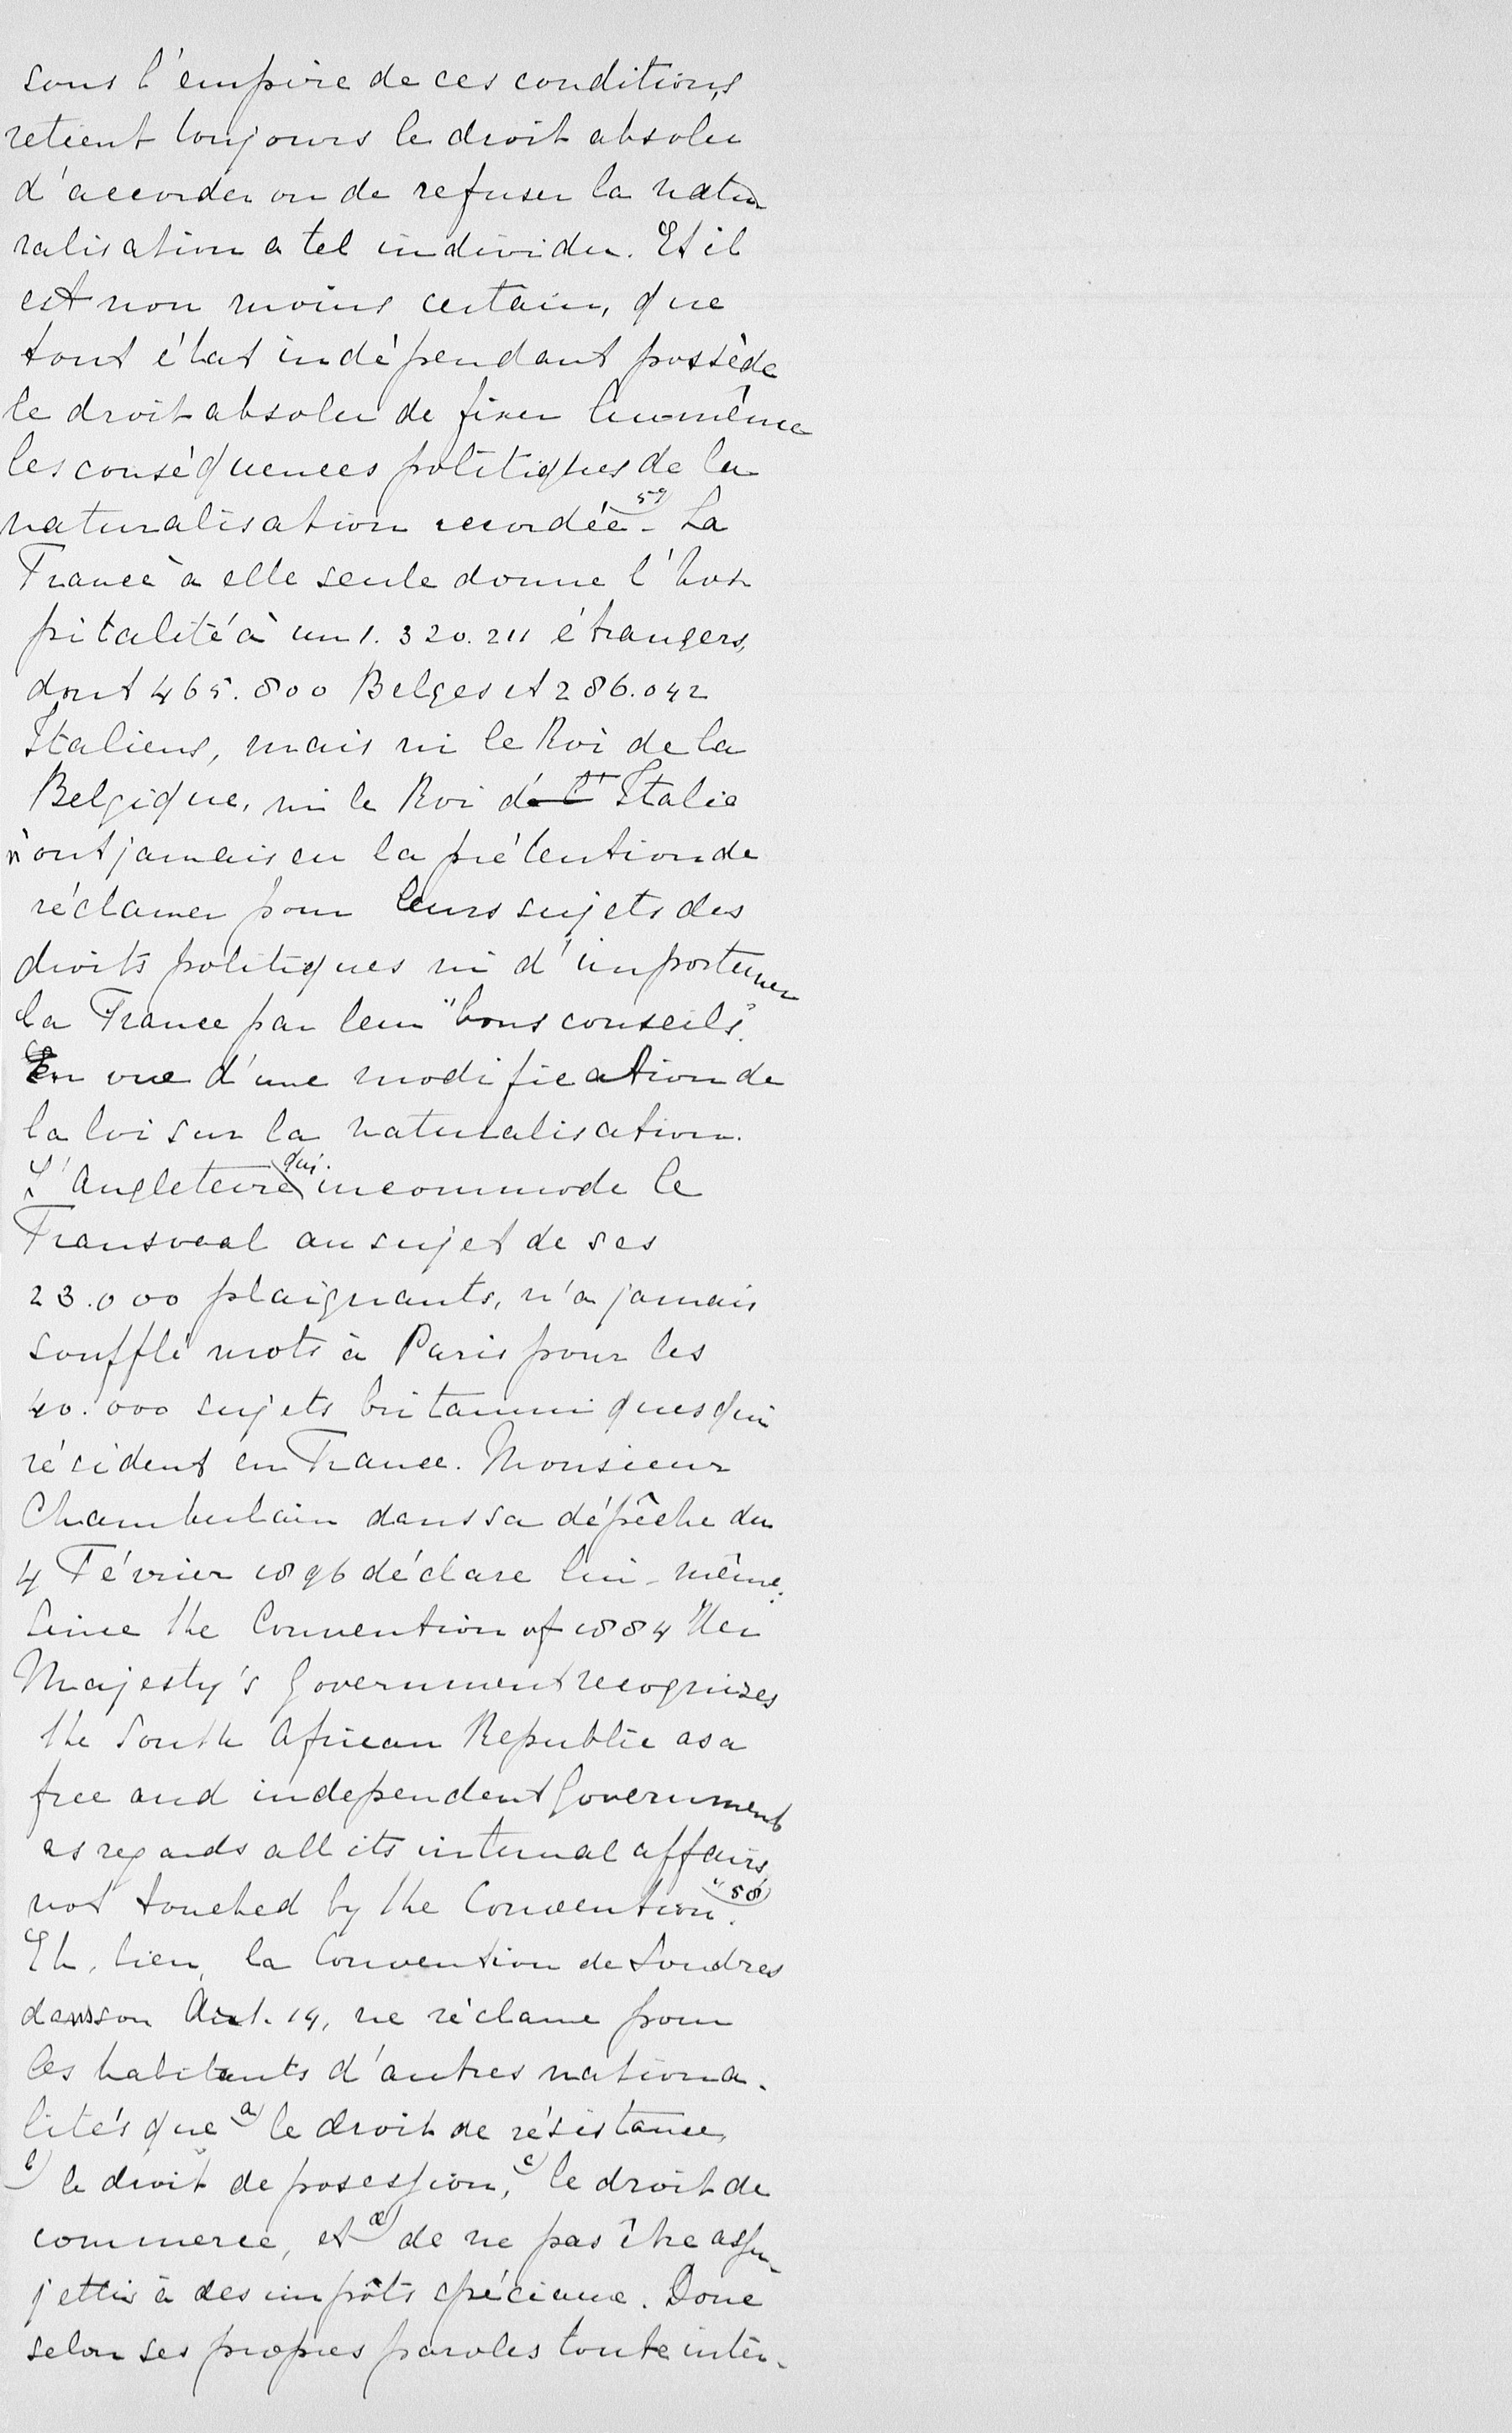 sous l'empire de ces conditions,
retient toujours le droit absolu
d'accorder ou de refuser la natu
ralisation a tel individu. Et il
est non moins certain, que
tout état indépendant possède
le droit absolu de fixer lui-même
les conséquences politiques de la
naturalisation accordée 59) - La
France à elle seule donne l'hos
pitalité à un 1.320.211 étrangers,
dont 465.800 Belges et 286.042
Italiens, mais ni le Roi de la
Belgique, ni le Roi de l' Italie
n'ont jamais eu la prétention de
réclamer pour leurs sujets des
droits politiques ni d'importuner
la France par leur "bons conseils".
En vue d'une modification de
la loi sur la naturalisation.
L'Angleterre qui incommode le
Transvaal au sujet de ses
23.000 plaignants, n'a jamais
soufflé mots à Paris pour les
40.000 sujets britanniques qui
résident en France. Monsieur
Chamberlain dans sa dépêche du
4 Février 1896 déclare lui-même:
Since the Convention of 1884 Her
Majesty's Government recognizes
the South African Republic as a
free and independent Government
as regards all its internal affairs
not touched by the Convention". 58)
Eh, bien, la Convention de Londres
dans son Art. 14, ne réclame pour
les habitants d'autres nationa-
lités que a) le droit de résistance,
b) le droit de possession, c) le droit de
commerce, et d) de ne pas être assu-
jettis à des impôts spéciaux. Donc
selon ses propres paroles toute inter-